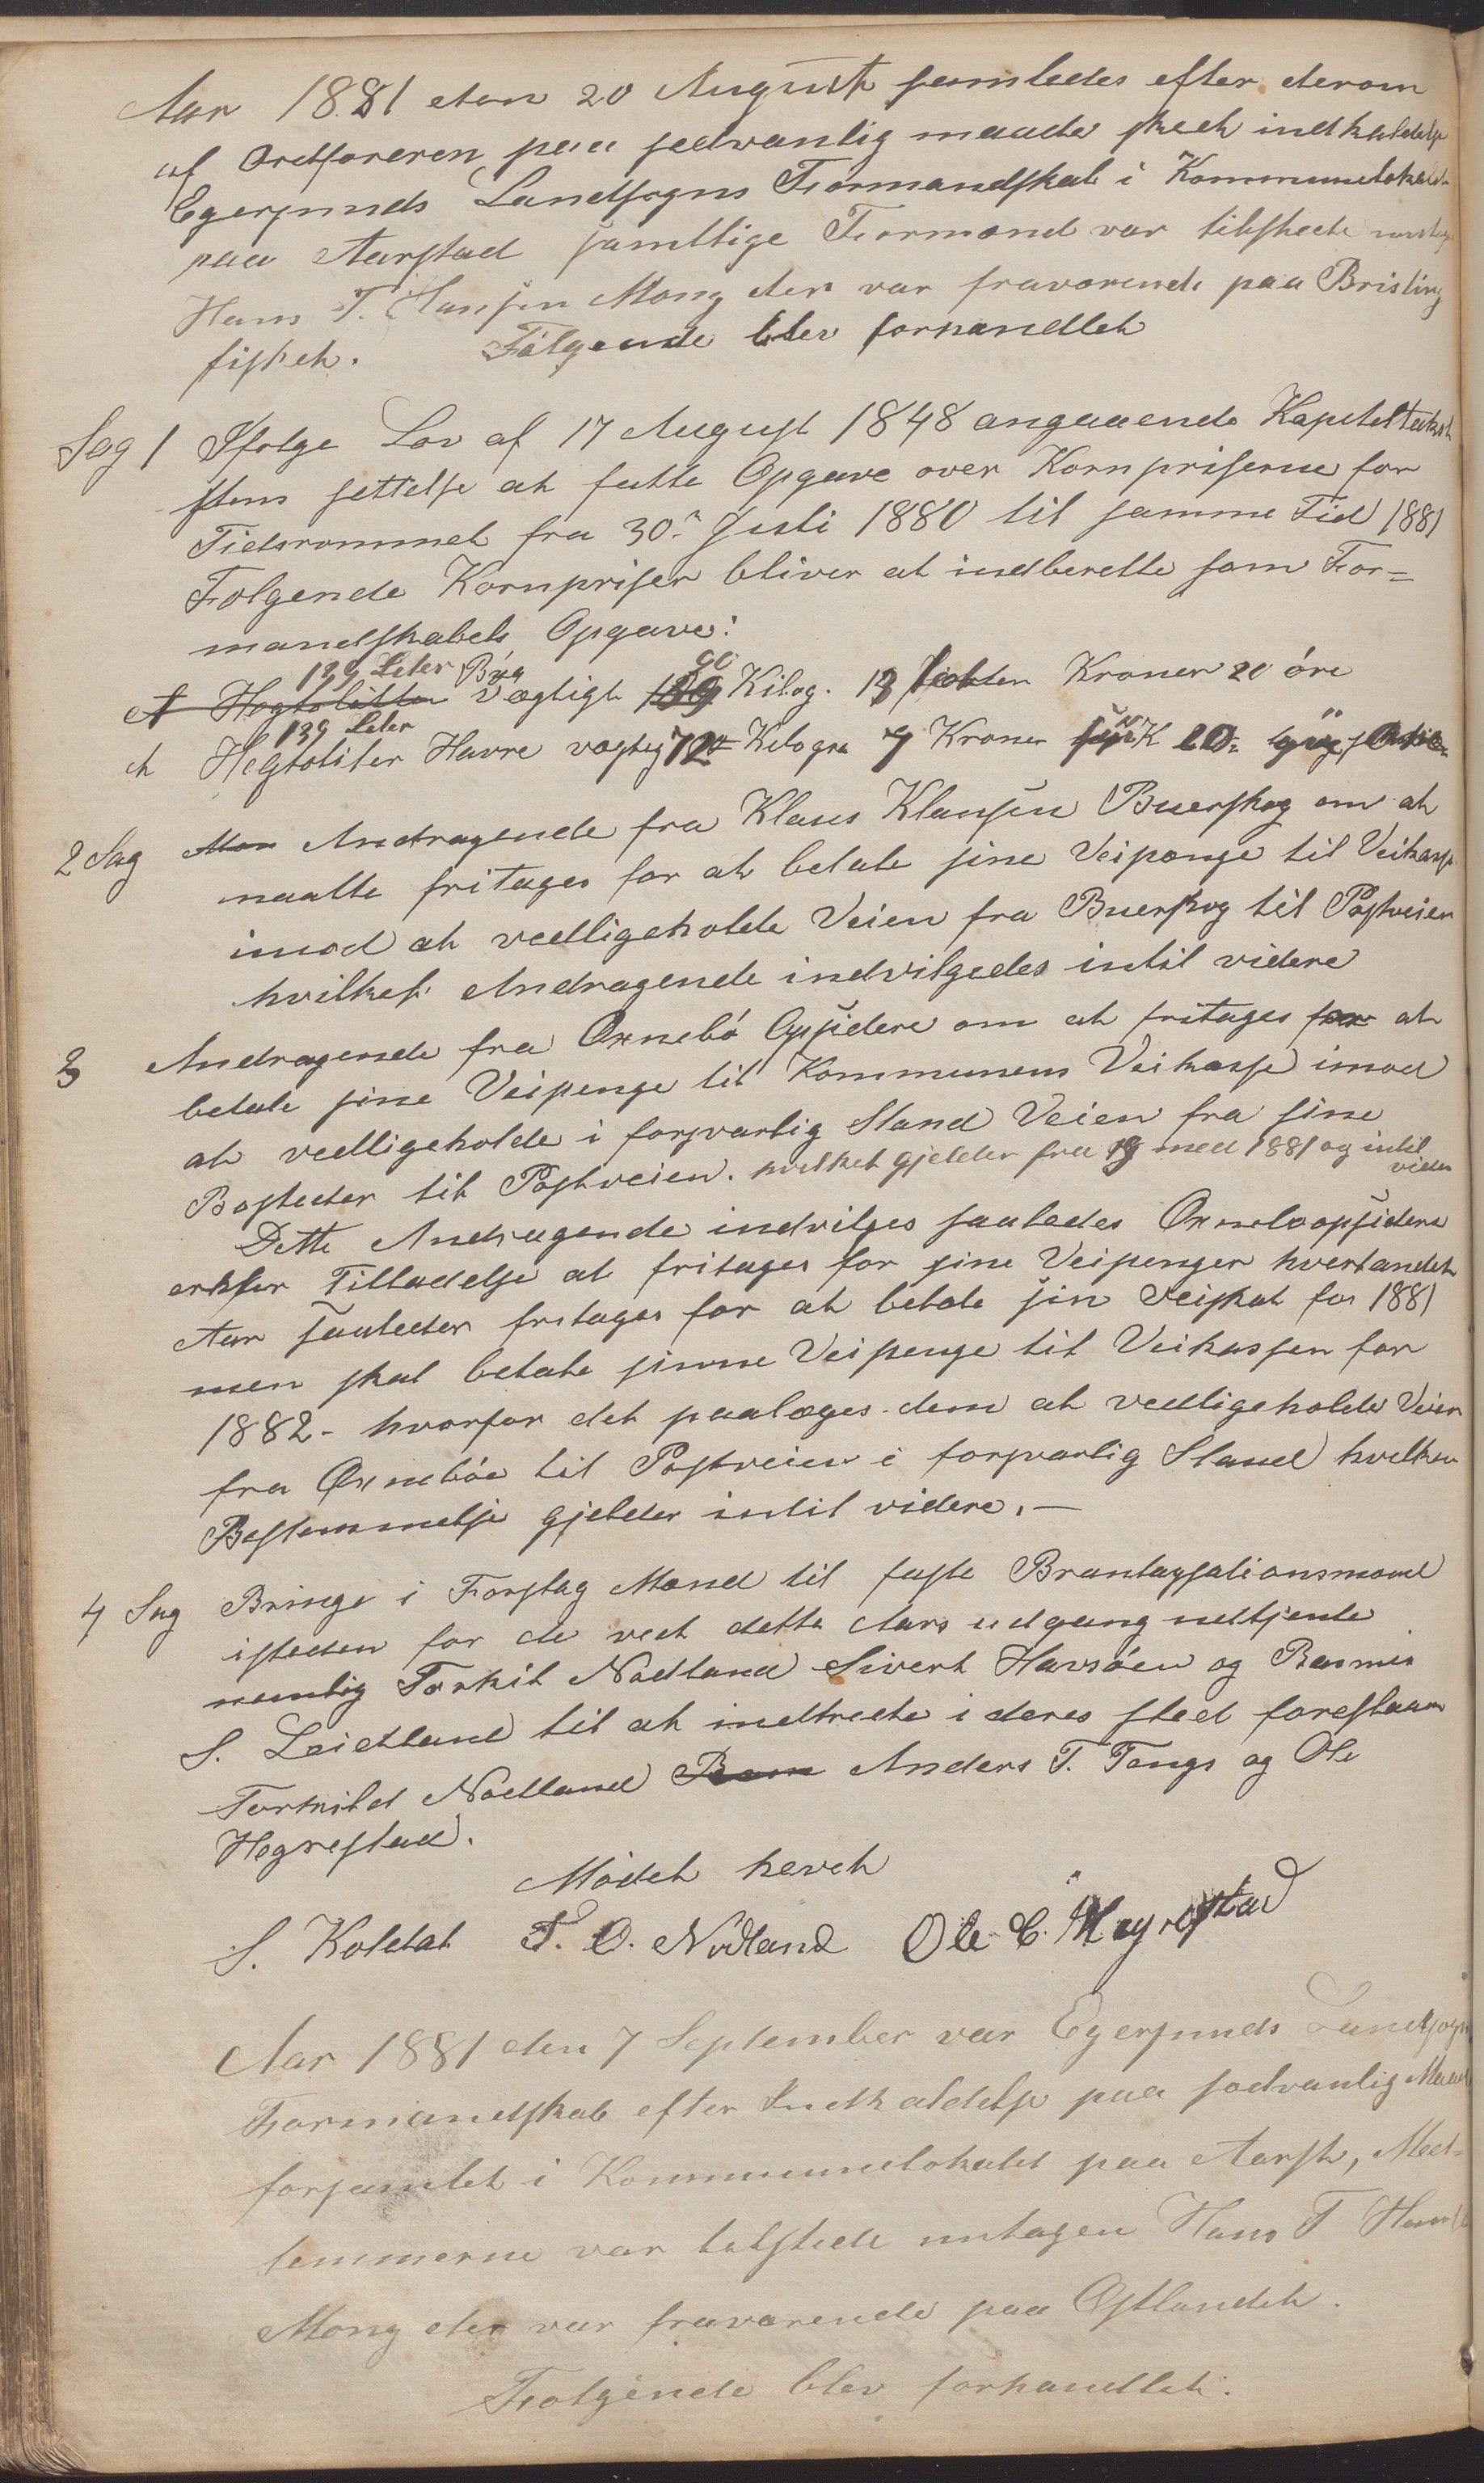 Aar 1881 den 20 August samledes efter derom
af Ordføreren paa sedvanlig maade skeet indkaldelse
Egersunds Landsogns Formandskab i Kommunelokalet
paa Aarstad samtlige Formænd var tilstede
Hans T. Hansen Mong der var fraværende paa Brisling
fisket. Følgende blev forhandlet
Sag 1 Ifølge Lov af 17 August 1848 angaaende Kapiteltakst
stens settelse at fatte Opgave over Kornpriserne for
Tidsrommet fra 30. Juli 1880 til samme Tid 1881
Følgende Kornpriser bliver at indberette som For=
mandskabets Opgave:
139 Leter Byg 90
et Hegtoliter vægtigt Kilog. 13 Kroner 20 øre
139 Leter
et Hegtoliter Havre vægtig 72 Kilogr 9 Kroner
2 Sag Andragende fra Klaus Klausen Buerskog om at
maatte fritages for at betale sine Veipenge til Veikasse
imod at vedligeholde Veien fra Buerskog til Postveien
hvilket Andragende indvilgedes intil videre
3 Andragende fra Øxnebø Opsidere om at fritages for at
betale sine Veipenge til Kommunens Veikasse imod
at vedligeholde i forsvarlig Stand Veien fra sine
Bosteder til Postveien. hvilket gjelder fra og med 1881 og intil
videre
Dette Andragende indvilges saaledes Øxneboopsidere
erholder Tilladelse at fritages for sine Veipenger hvertandet
Aar saaledes fritages for at betale sin Veiskat for 1881
men skal betale sinne Veipenge til Veikassen for
1882 - hvorfor det paalæges dem at vedligeholde Veien
fra Øxnebøe til Postveien i forsvarlig Stand hvilken
Bestemmelse gjelder intil videre. —
4 Sag Bringe i Forslag Mænd til faste Brantaxsationsmænd
isteden for de ved dette Aars udgang udtjente
nemlig Torkil Nodland Sivert Havsøen og Rasmus
S. Leidland til at indtræde i deres sted forestaar
Torkild Nodland Anders T. Tengs og Ole
Hegrestad.
Mødet hevet
S. Koldal T. O. Nodland Ole C. Hegrestad
Aar 1881 den 7 September var Egersunds Landsogns
Formandskab efter Indkaldelse paa sædvanlig Maade
forsamlet i Kommunelokalet paa Aarst, Med=
lemmerne var tilstede untagen Hans T
Mong der var fraværende paa Østlandet.
Følgende blev forhandlet.